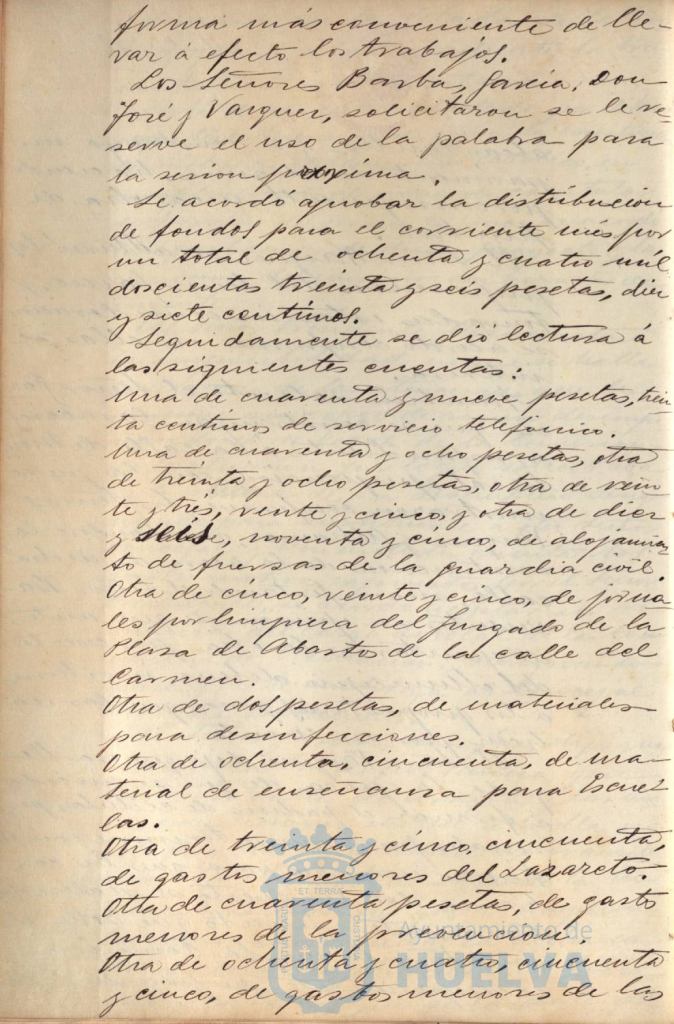 forma más conveniente de lle-
var á efecto los trabajos.
Los Señores Barba, García, Don
José y Vazquez, solicitaron se le re-
serve el uso de la palabra para
la sesion proxima.
Se acordó aprobar la distribucion
de fondos para el corriente més por
un total de ochenta y cuatro mil
doscientas treinta y seis pesetas, diez
y siete centimos.
Seguidamente se dió lectura á
las siguientes cuentas:
Una de cuarenta y nueve pesetas, trein-
ta centimos de servicio telefónico.
Una de cuarenta y ocho pesetas, otra
de treinta y ocho pesetas, otra de vein-
te y trés, veinte y cinco, y otra de diez
y seis, noventa y cinco, de alojamien-
to de fuersas de la guardia civil.
Otra de cinco, veinte y cinco, de jorna-
les por limpiera del Jurgado de la
Plasa de Abastos de la calle del
Carmen.
Otra de dos pesetas, de materiales
para desinfecciones.
Otra de ochenta, cincuenta, de ma-
terial de enseñansa para Escue-
las.
Otra de treinta y cinco, cincuenta,
de gastos menores del Lazareto.
Otra de cuarenta pesetas, de gastos
menores de la prevencion.
Otra de ochenta y cuatro, cincuenta
y cinco, de gastos menores de las
ET TERRAE
Ayuntamiento de
HUELVA